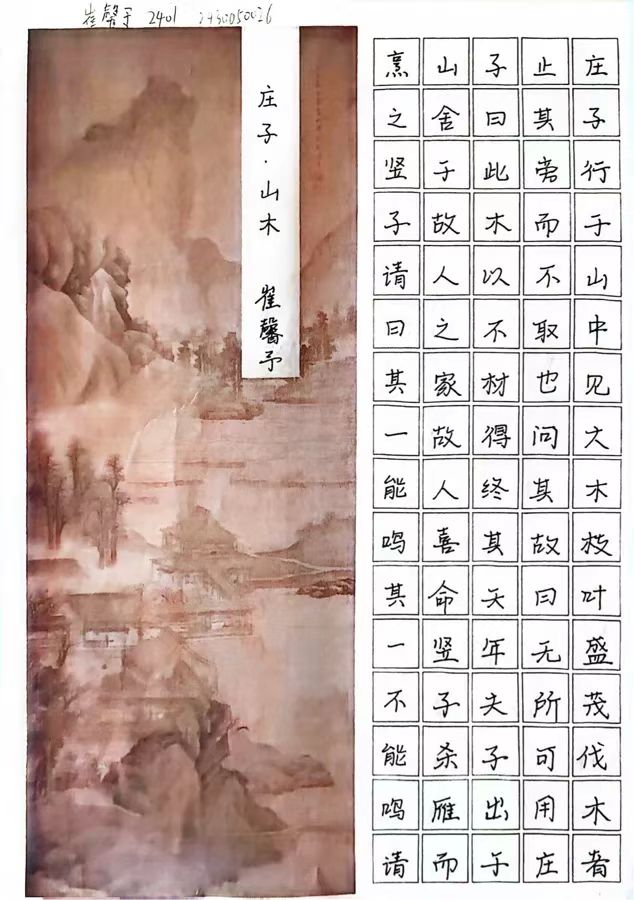 崔馨予 2401 2430050026
庄子·山木 崔馨予
庄子行于山中见大木枝叶盛茂伐木者
止其旁而不取也问其故曰无所可用庄
子曰此木以不材得终其天年夫子出于
山舍于故人之家故人喜命竖子杀雁而
烹之竖子请曰其一能鸣其一不能鸣请